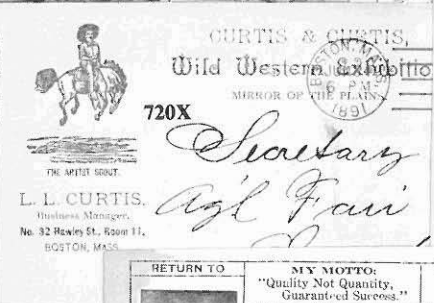 CURTIS & CURTIS,
Wild Western Exhibitio
MIRROR OF THE PLAINS
BOSTON, MASS
6 PM
1891
720X
THE ARTIST SCOUT.
Secretary
Ag'l Fair
L. L. CURTIS,
Business Manager.
No. 32 Hawley St., Room 11,
BOSTON, MASS.
RETURN TO
MY MOTTO:
"Quility Not Quantity,
Guaranteed Success."